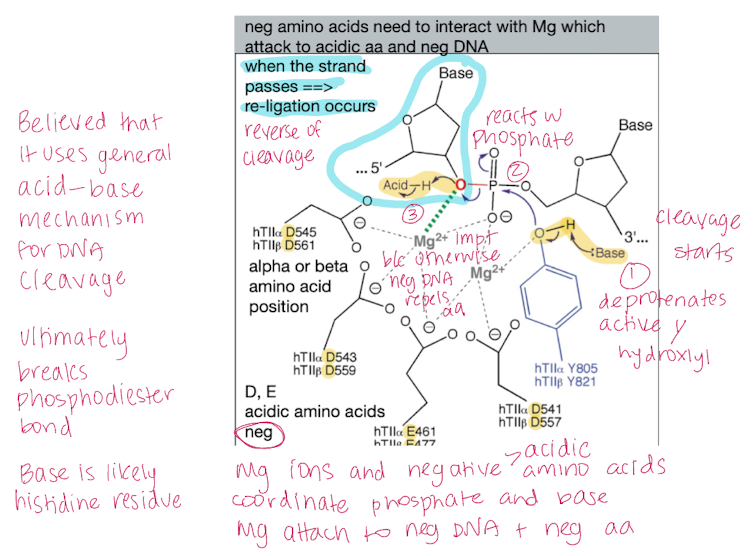 neg amino acids need to interact with Mg which
attack to acidic aa and neg DNA
when the strand
passes ==>
re-ligation occurs
reverse of
cleavage
Believed that
it uses general
acid-base
mechanism
for DNA
cleavage
Ultimately
breaks
phosphodiester
bond
Base is likely
histidine residue
Base
reacts w
phosphate
②
Base
... 5'
Acid—H
O
P
O
O
O⊖
③
Mg2+ impt
b/c otherwise
neg DNA
repels
aa
Mg2+
O
H
:Base
3'...
cleavage
starts
①
deprotenates
active y
hydroxlyl
hTIIα D545
hTIIβ D561
alpha or beta
amino acid
position
hTIIα D543
hTIIβ D559
hTIIα Y805
hTIIβ Y821
D, E
acidic amino acids
neg
hTIIα E461
hTIIβ E477
hTIIα D541
hTIIβ D557
acidic
Mg ions and negative > amino acids
coordinate phosphate and base
Mg attach to neg DNA + neg aa